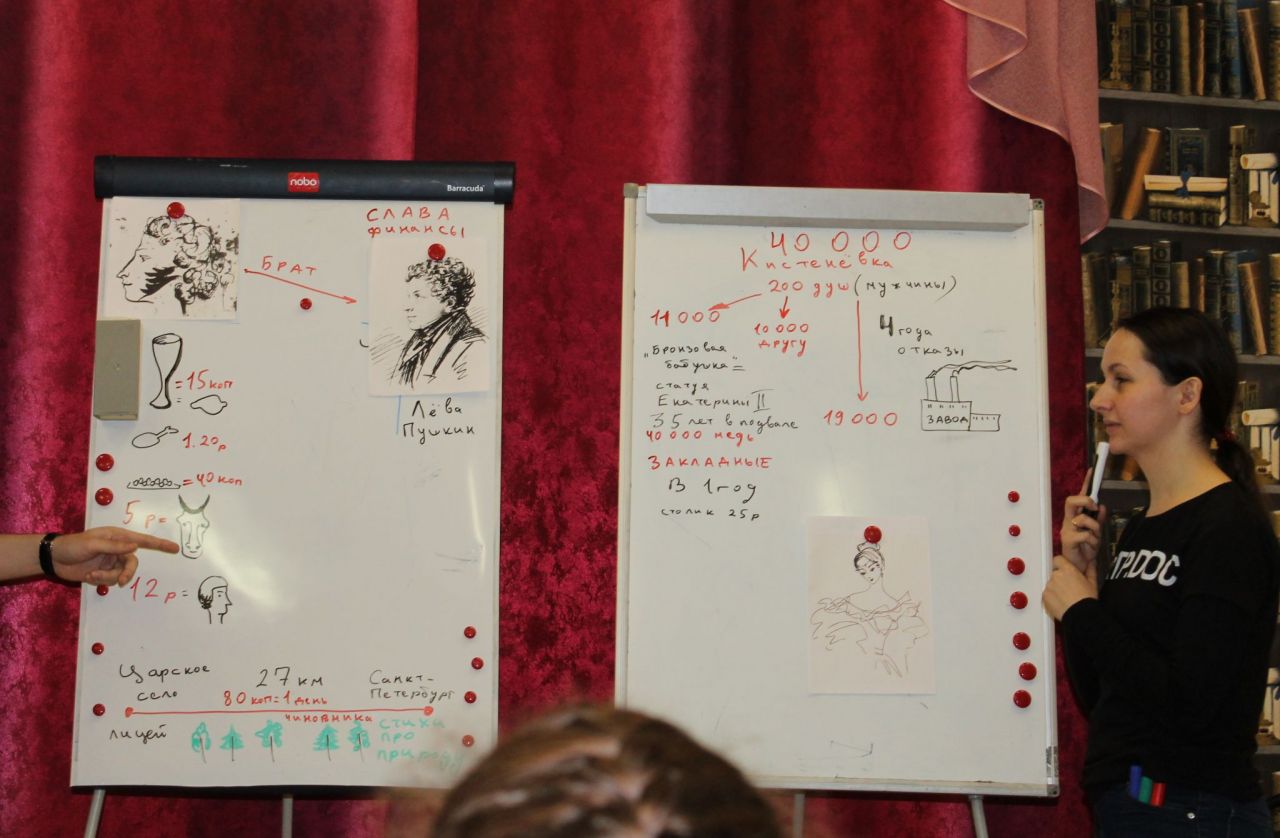 nobo
Barracuda
СЛАВА
финансы
БРАТ
= 15 коп
=
Лёва
Пушкин
1.20р
= 40 коп
5 р =
12 р =
Царское
село
27 км
Санкт-
Петербург
80 коп = 1 день
чиновника
лицей
стихи
про
природу
40 000
Кистенёвка
200 душ (мужчины)
11 000
10 000
другу
4 года
отказы
"Бронзовая
бабушка" =
статуя
Екатерины II
35 лет в подвале
40 000 медь
19 000
ЗАВОД
ЗАКЛАДНЫЕ
В 1 год
столик 25р